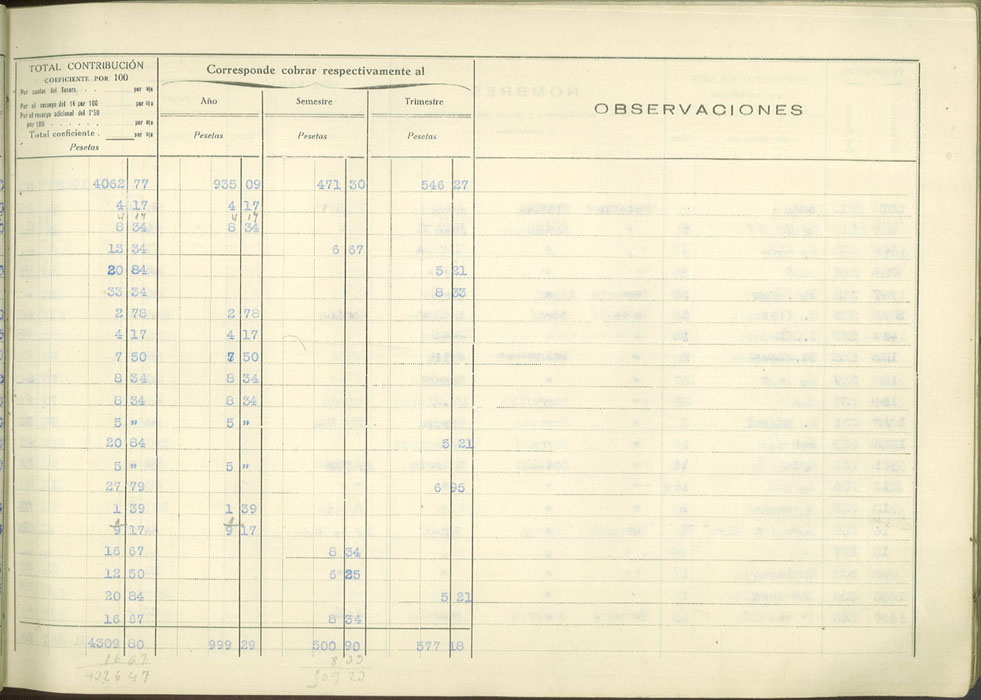 TOTAL CONTRIBUCIÓN
COEFICIENTE POR 100
Por cuotas del Tesoro. . . por 0/0
Por el recargo del 16 por 100 por 0/0
Por el recargo adicional del 7'50
por 100 . . . . . . por 0/0
Total coeficiente . por 0/0
Pesetas
Corresponde cobrar respectivamente al
Año Semestre Trimestre
Pesetas Pesetas Pesetas
OBSERVACIONES
4062 77 935 09 471 30 546 27
4 17 4 17
4 17 4 17
8 34 8 34
13 34 6 67
20 84 5 21
33 34 8 33
2 78 2 78
4 17 4 17
7 50 7 50
8 34 8 34
8 34 8 34
5 " 5 "
20 84 5 21
5 " 5 "
27 79 6 95
1 39 1 39
9 17 9 17
16 67 8 34
12 50 6 25
20 84 5 21
16 67 8 34
4309 80 999 29 500 90 577 18